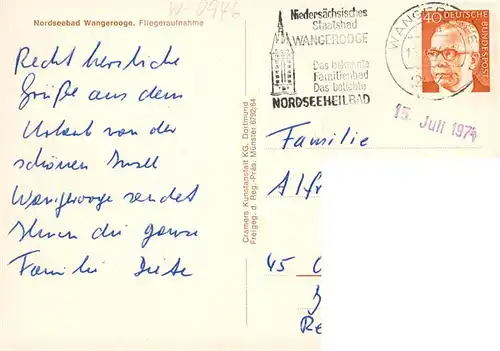 Nordseebad Wangerooge. Fliegeraufnahme
W-0946
Recht herzliche
Grüße aus dem
Urlaub von der
schönen Insel
Wangerooge sendet
Ihnen die ganze
Familie
Cramers Kunstanstalt KG, Dortmund
Freigeg. d. Reg.-Präs. Münster 6792/64
Niedersächsisches
Staatsbad
WANGEROOGE
Das bekannte
Familienbad
Das beliebte
NORDSEEHEILBAD
WANGER
40 DEUTSCHE
BUNDESPOST
15. Juli 1974
Familie
Alfr
45
Re